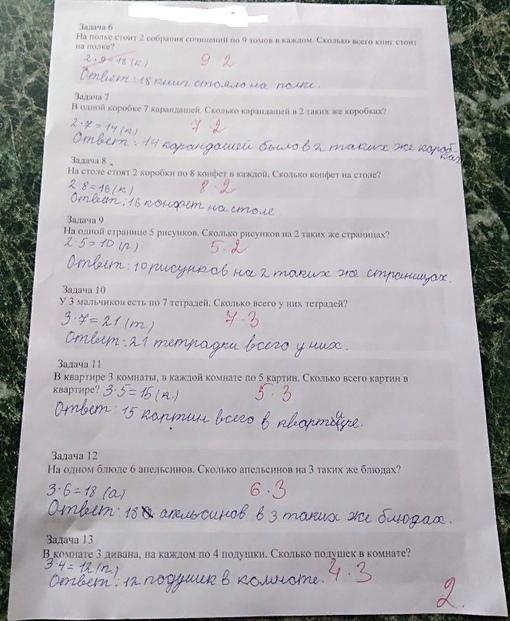 Задача 6
На полке стоит 2 собрания сочинений по 9 томов в каждом. Сколько всего книг стоит
на полке?
2·9=18 (к) 9·2
Ответ: 18 книг стояло на полке.
Задача 7
В одной коробке 7 карандашей. Сколько карандашей в 2 таких же коробках?
2·7=14 (к) 7·2
Ответ: 14 карандашей было в 2 таких же короб-
ках
Задача 8
На столе стоят 2 коробки по 8 конфет в каждой. Сколько конфет на столе?
2·8=16 (к) 8·2
Ответ: 16 конфет на столе
Задача 9
На одной странице 5 рисунков. Сколько рисунков на 2 таких же страницах?
2·5=10 (р) 5·2
Ответ: 10 рисунков на 2 таких же страницах.
Задача 10
У 3 мальчиков есть по 7 тетрадей. Сколько всего у них тетрадей?
3·7=21 (т) 7·3
Ответ: 21 тетрадки всего у них.
Задача 11
В квартире 3 комнаты, в каждой комнате по 5 картин. Сколько всего картин в
квартире? 3·5=15 (к) 5·3
Ответ: 15 картин всего в квартире.
Задача 12
На одном блюде 6 апельсинов. Сколько апельсинов на 3 таких же блюдах?
3·6=18 (а) 6·3
Ответ: 18 апельсинов в 3 таких же блюдах.
Задача 13
В комнате 3 дивана, на каждом по 4 подушки. Сколько подушек в комнате?
3·4=12 (п) 4·3
Ответ: 12 подушек в комнате.
2.